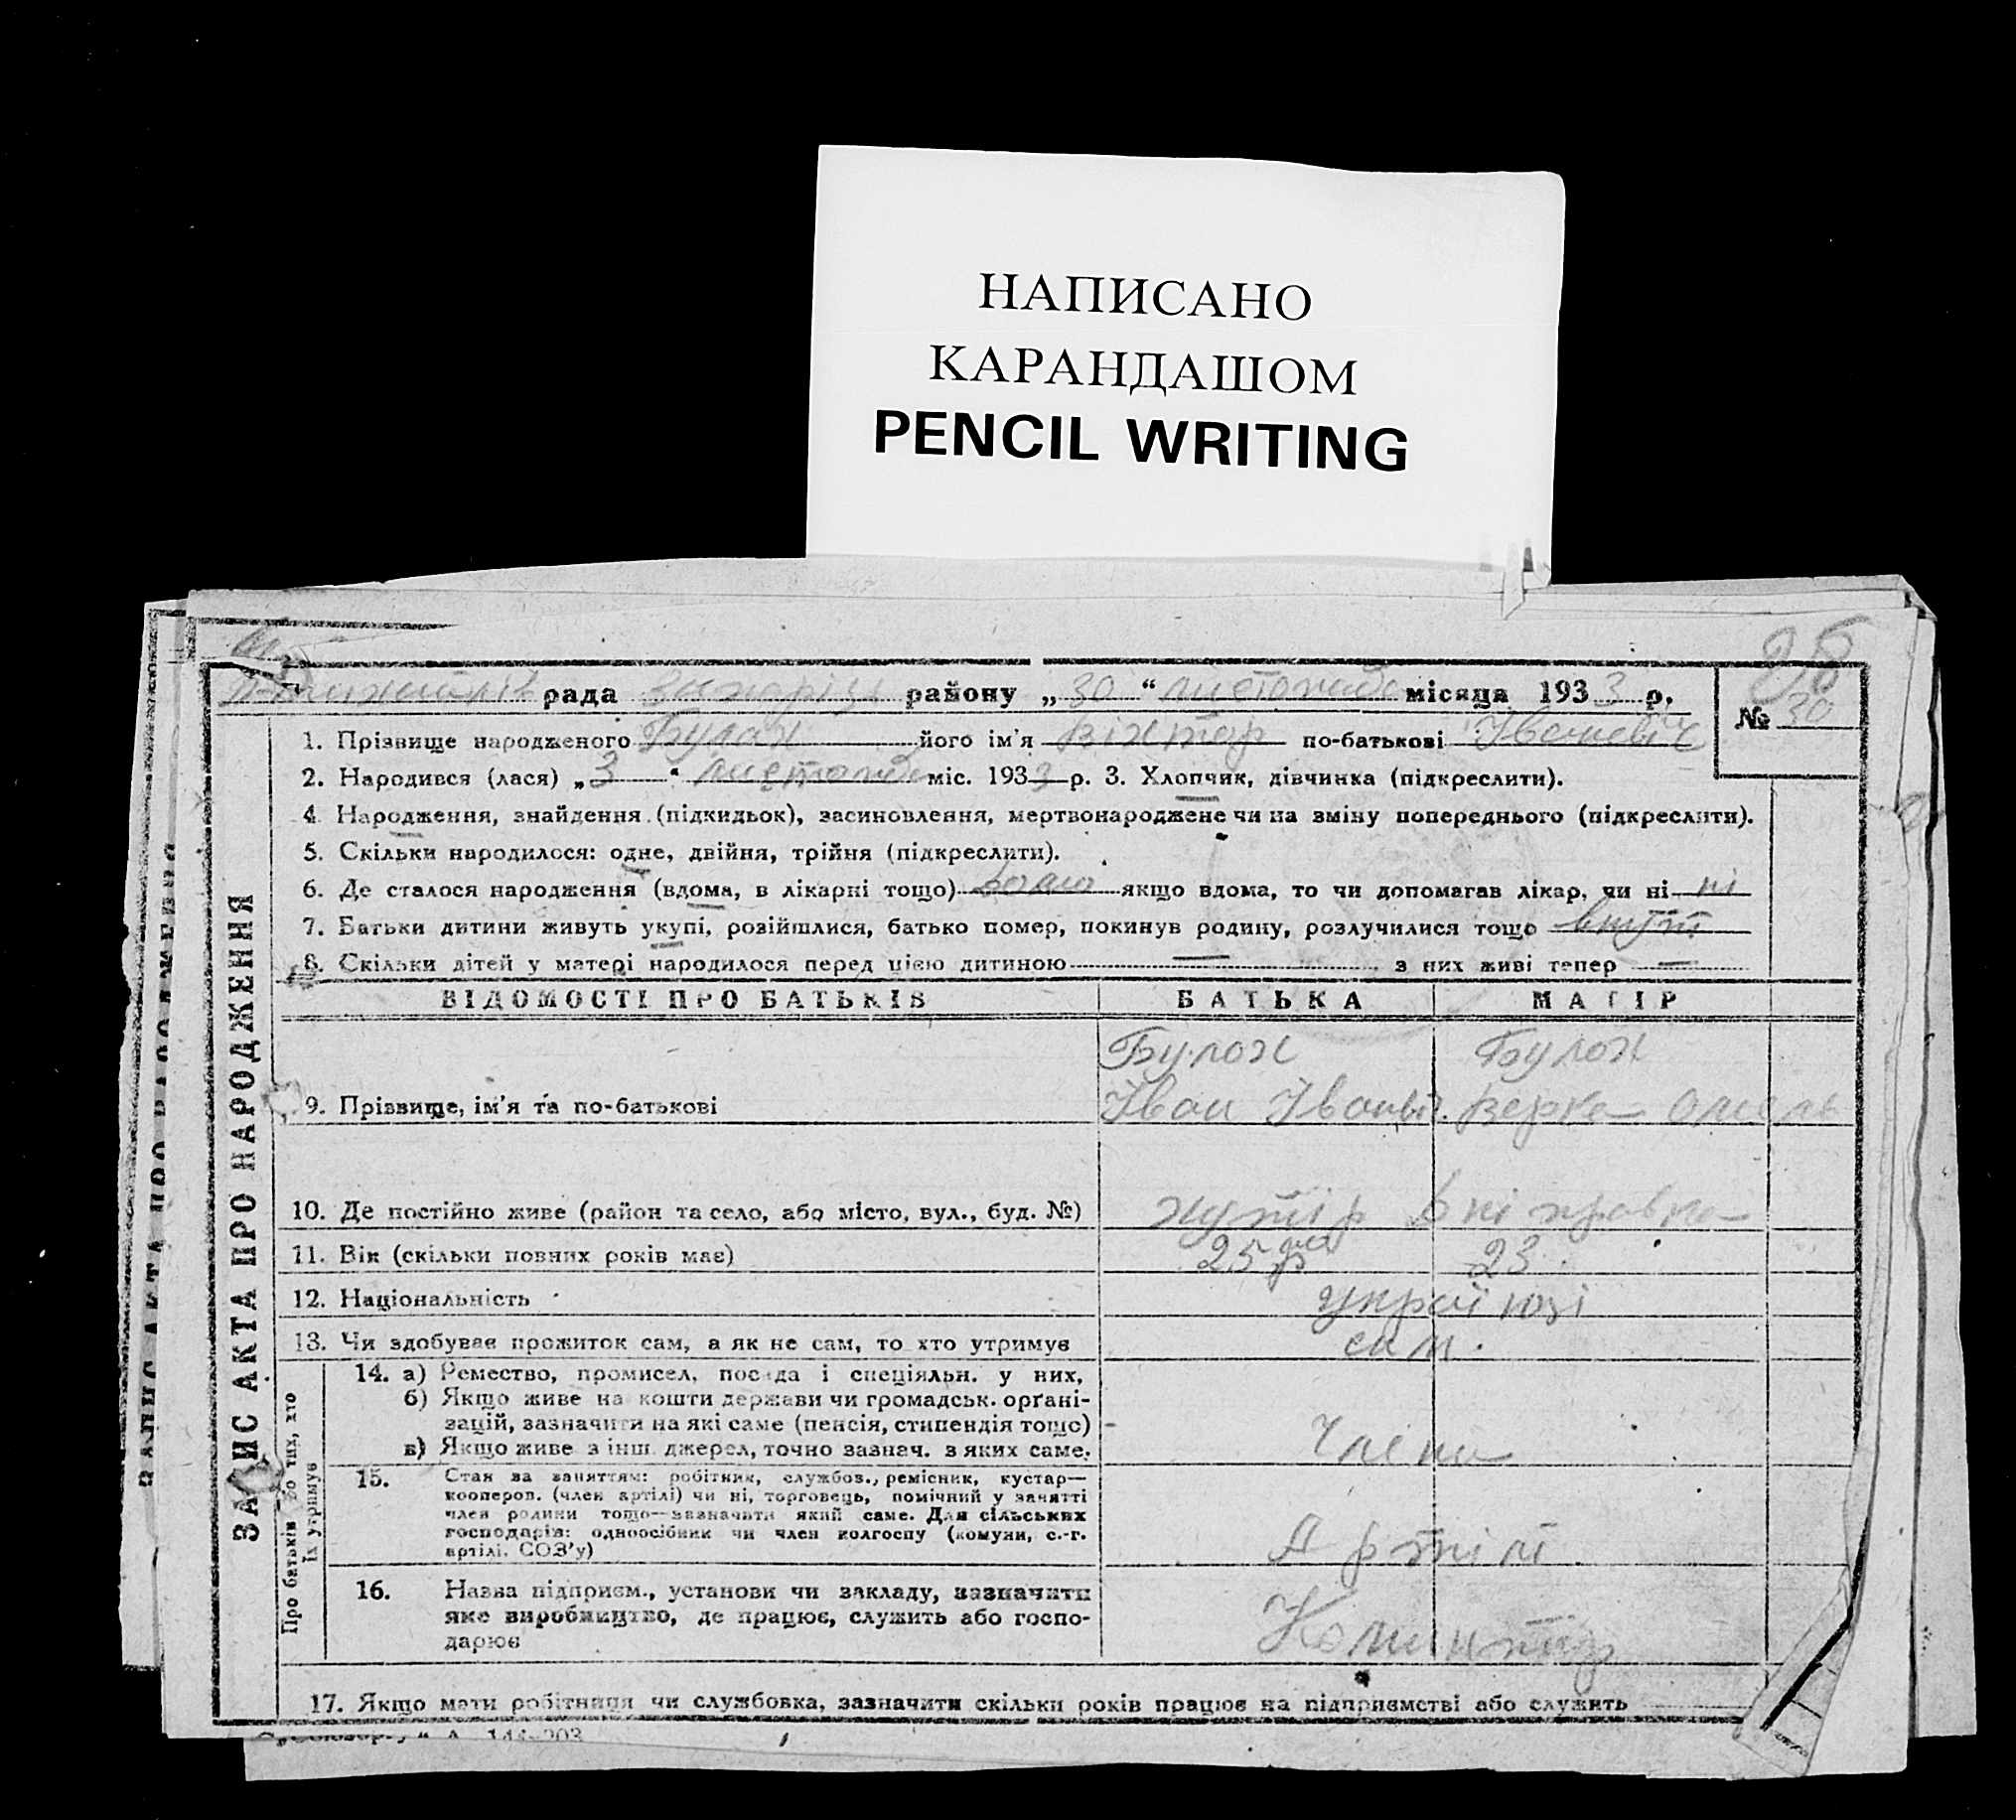 НАПИСАНО
КАРАНДАШОМ
PENCIL WRITING
ЗАПИС АКТА ПРО НАРОДЖЕННЯ
рада району „30“ листопада місяця 1933 р.
№ 30
1. Прізвище народженого Булах його ім'я Віктор по-батькові Іваневіч
2. Народився (лася) „3“ листопада міс. 1933 р. 3. Хлопчик, дівчинка (підкреслити).
4. Народження, знайдення (підкидьок), засиновлення, мертвонароджене чи на зміну попереднього (підкреслити).
5. Скільки народилося: одне, двійня, трійня (підкреслити).
6. Де сталося народження (вдома, в лікарні тощо) якщо вдома, то чи допомагав лікар, чи ні ні
7. Батьки дитини живуть укупі, розійшлися, батько помер, покинув родину, розлучилися тощо
8. Скільки дітей у матері народилося перед цією дитиною — з них живі тепер —
ВІДОМОСТІ ПРО БАТЬКІВ БАТЬКА МАТІР
Булах Булах
9. Прізвище, ім'я та по-батькові Іван Іванвіч. Верка Омель
10. Де постійно живе (район та село, або місто, вул., буд. №) хутір Дніпровка
11. Вік (скільки повних років має) 25 23
12. Національність україюзі
13. Чи здобуває прожиток сам, а як не сам, то хто утримує сам.
Про батьків або тих, хто їх утримує
14. а) Ремество, промисел, посада і спеціяльн. у них,
б) Якщо живе на кошти держави чи громадськ. органі-
зацій, зазначити на які саме (пенсія, стипендія тощо)
в) Якщо живе з інш. джерел, точно зазнач. з яких саме. Члени
15. Стан за заняттям: робітник, службов., ремісник, кустар—
кооперов. (член артілі) чи ні, торговець, помічний у занятті
член родини тощо—зазначити який саме. Для сільських
господарів: одноосібник чи член колгоспу (комуни, с.-г.
артілі, СОЗ'у) Артілі
16. Назва підприєм., установи чи закладу, зазначити
яке виробництво, де працює, служить або госпо-
дарює Комінтер
17. Якщо мати робітниця чи службовка, зазначити скільки років працює на підприємстві або служить